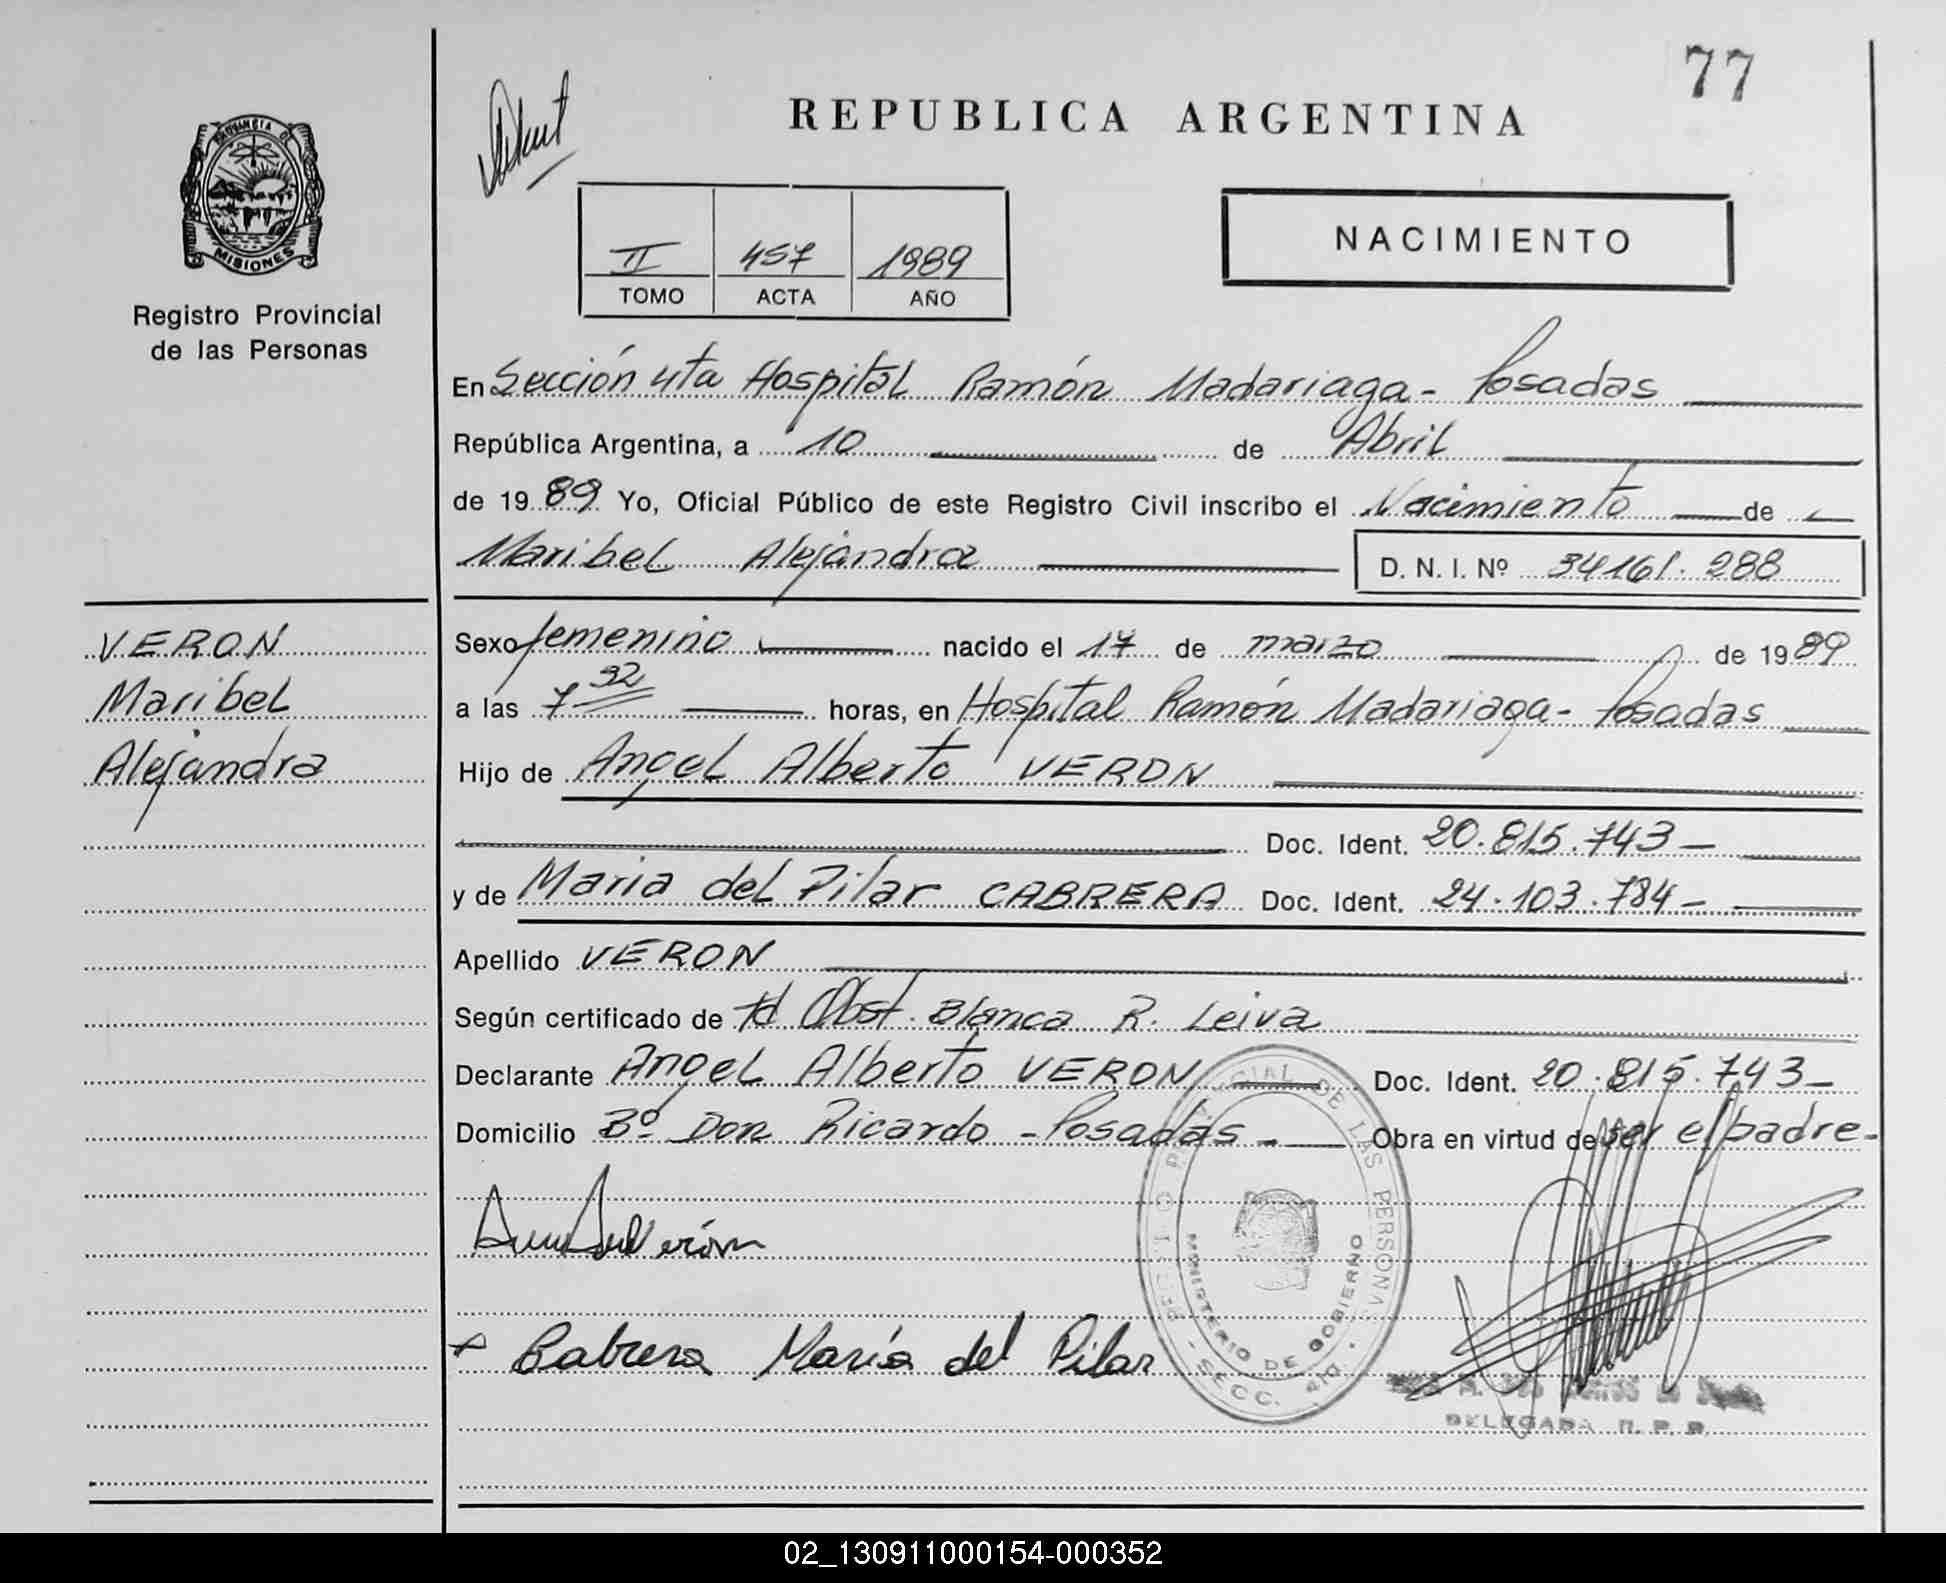 77
REPUBLICA ARGENTINA
PROVINCIA DE
MISIONES
Registro Provincial
de las Personas
II 457 1989
TOMO ACTA AÑO
NACIMIENTO
En Sección 4ta Hospital Ramón Madariaga - Posadas
República Argentina, a 10 de Abril
de 1989 Yo, Oficial Público de este Registro Civil inscribo el Nacimiento de
Maribel Alejandra D. N. I. Nº 34161.288
VERON
Maribel
Alejandra
Sexo femenino nacido el 17 de marzo de 1989
a las 7 32 horas, en Hospital Ramón Madariaga - Posadas
Hijo de Angel Alberto VERON
Doc. Ident. 20.815.743 -
y de Maria del Pilar CABRERA Doc. Ident. 24.103.784 -
Apellido VERON
Según certificado de Obst. Blanca R. Leiva
Declarante Angel Alberto VERON Doc. Ident. 20.815.743 -
Domicilio Bº Don Ricardo - Posadas - Obra en virtud de ser el padre -
Verón
Cabrera María del Pilar
DE LAS PERSONAS
MINISTERIO DE GOBIERNO
SECC. 4ta.
DELEGADA R. P. P.
02_130911000154-000352